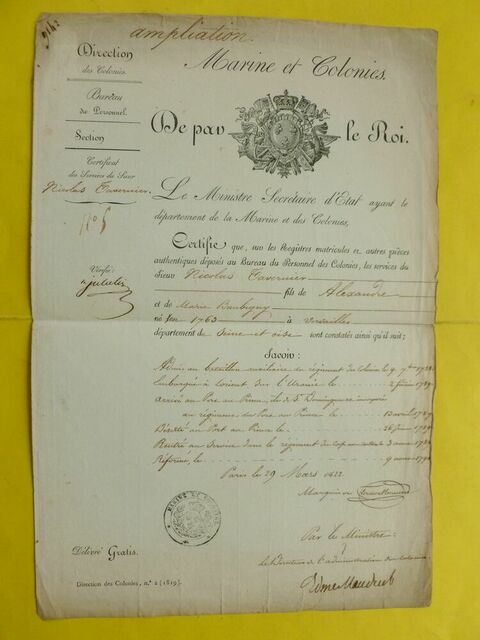 ampliation.
Direction
des Colonies.
Bureau
du Personnel.
Section
Certificat
des Services du Sieur
Nicolas Tavernier.
N° 5
Vérifié
Marine et Colonies.
De par le Roi.
Le Ministre Secrétaire d'Etat ayant le
département de la Marine et des Colonies,
Certifie que, sur les Registres matricules et autres pièces
authentiques déposés au Bureau du Personnel des Colonies, les services du
Sieur Nicolas Tavernier
fils de Alexandre
et de Marie Baubigny
né en 1763 à Versailles
département de Seine et oise sont constatés ainsi qu'il suit;
Savoir:
Admis au bataillon auxiliaire du régiment des Colonies le 9
Embarqué à Lorient sur l'Uranie le 2 février
Arrivé au Port au Prince, île de St Domingue et incorporé
au régiment du Port au Prince le
Déserté au Port au Prince le 26
Rentré au Service dans le régiment du Cap le 3
Réformé, le 9
Paris le 29 Mars 1822
Marquis de Clermont Tonnerre
Par le Ministre
Le Directeur de l'administration des Colonies
Edme Mauduit
Délivré Gratis.
Direction des Colonies, n.° 2 (1819).